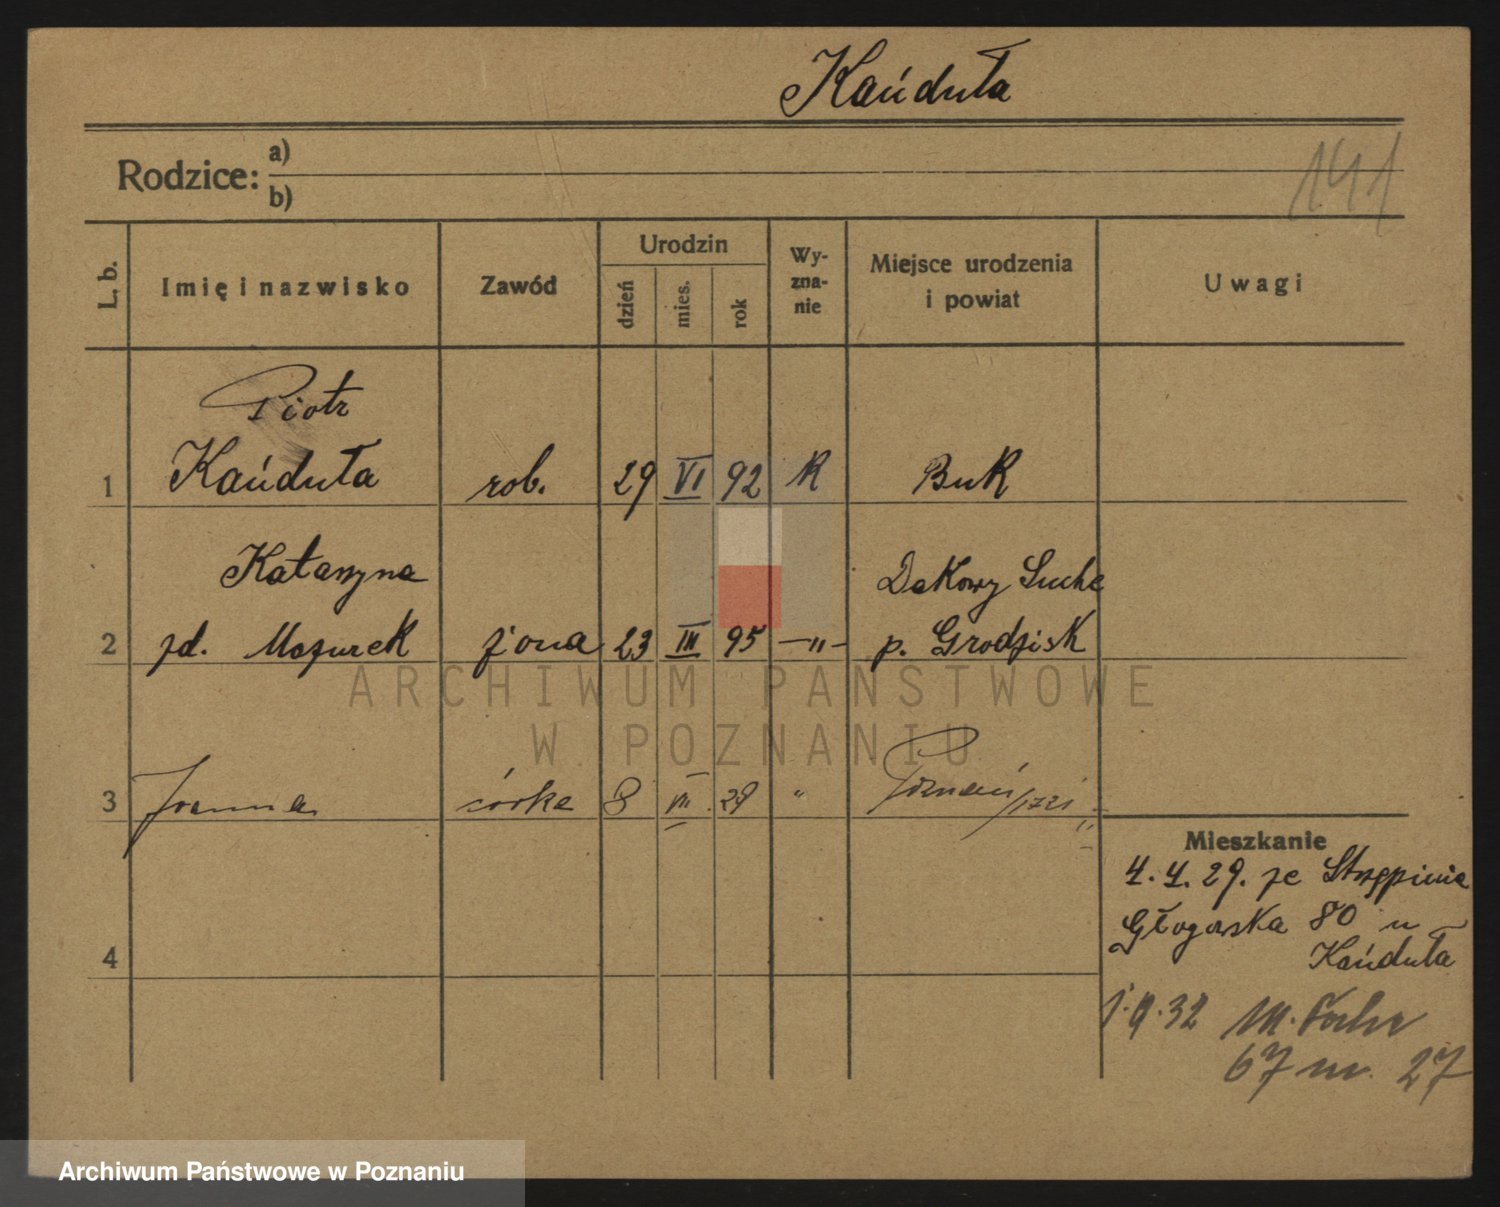 Kańduła
141
Rodzice: a)
b)
L. b.
Imię i nazwisko
Zawód
Urodzin
dzień
mies.
rok
Wy-
zna-
nie
Miejsce urodzenia
i powiat
Uwagi
Piotr
1 Kańduła rob. 29 VI 92 R Buk
Katarzyna Dakowy Suche
2 zd. Mazurek żona 23 III 95 —"— p. Grodzisk
ARCHIWUM PAŃSTWOWE
W POZNANIU
3 Joanna córka 8 29 " Poznań
Mieszkanie
4. 4. 29. ze Strzępinia
Głogowska 80 u
Kańduła
4
32 M. Focha
67 m. 27
Archiwum Państwowe w Poznaniu